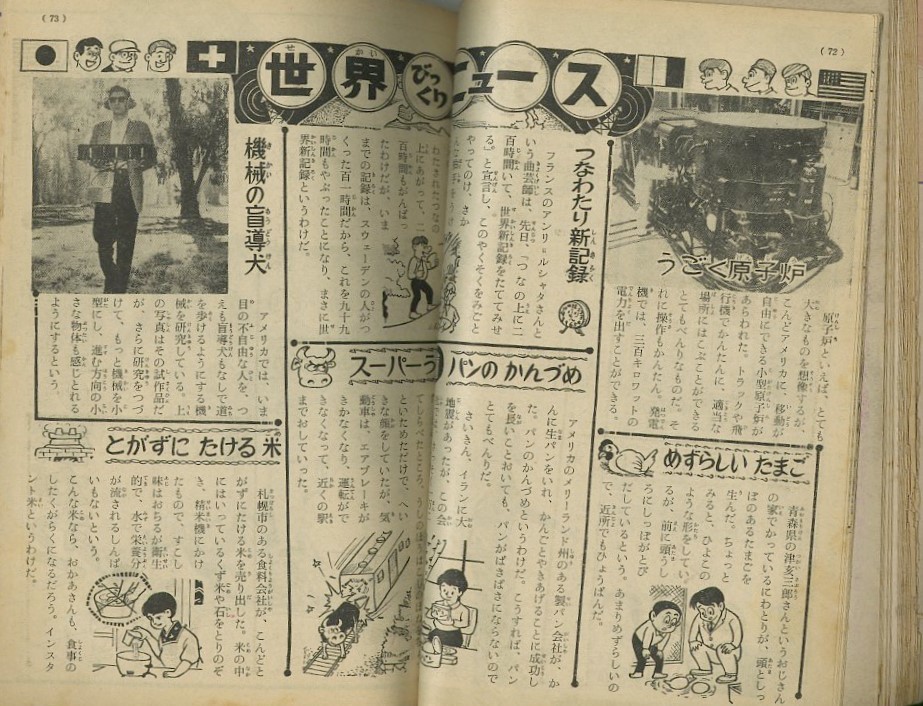 (72)
(73)
世界びっくりニュース
うごく原子炉
原子炉といえば、とても
大きなものを想像するが、
こんどアメリカに、移動が
自由にできる小型原子炉が
あらわれた。トラックや飛
行機でかんたんに、適当な
場所にはこぶことができる
とてもべんりなものだ。そ
れに操作もかんたん。発電
機では、三百キロワットの
電力を出すことができる。
めずらしい たまご
青森県の津亥三郎さんというおじさん
の家でかっているにわとりが、頭としっ
ぽのあるたまごを
生んだ。ちょっと
みると、ひよこの
ような形をしてい
るが、前に頭うし
ろにしっぽがとび
だしているという。あまりめずらしいの
で、近所でもひょうばんだ。
つなわたり新記録
フランスのアンリ＝ルシャタさんと
いう曲芸師は、先日、「つなの上に二
百時間いて、世界新記録をたててみせ
る。」と宣言し、このやくそくをみごと
やってのけ、さか
わたされたつなの
上にあがって、二
百時間もがんばっ
たわけだが、いま
までの記録は、スウェーデンの人がつ
くった百一時間だから、これを九十九
時間もやぶったことになり、まさに世
界新記録というわけだ。
パンの かんづめ
アメリカのメリーランド州のある製パン会社が、か
んに生パンをいれ、かんごとやきあげることに成功し
た。パンのかんづめというわけだ。こうすれば、パン
を長いことおいても、パンがぱさぱさにならないので
とてもべんりだ。
さいきん、イランに大
地震があったが、この会
スーパー
といためただけで、へい
きな顔をしていたが、気
動車は、エアブレーキが
きかなくなり、運転がで
きなくなって、近くの駅
までおしていった。
機械の盲導犬
アメリカでは、いま
目の不自由な人を、つ
えも盲導犬もなしで道
を歩けるようにする機
械を研究している。上
の写真はその試作品だ
が、さらに研究をつづ
けて、もっと機械を小
型にし、進む方向の小
さな物体も感じとれる
ようにするという。
とがずに たける 米
札幌市のある食料会社が、こんどと
がずにたける米を売り出した。米の中
にはいっているくず米や石をとりのぞ
き、精米機にかけ
たもので、すこし
味はおちるが衛生
的で、水で栄養分
が流されるしんぱ
いもないという。
こんな米なら、おかあさんも、食事の
したくがらくになるだろう。インスタ
ント米というわけだ。